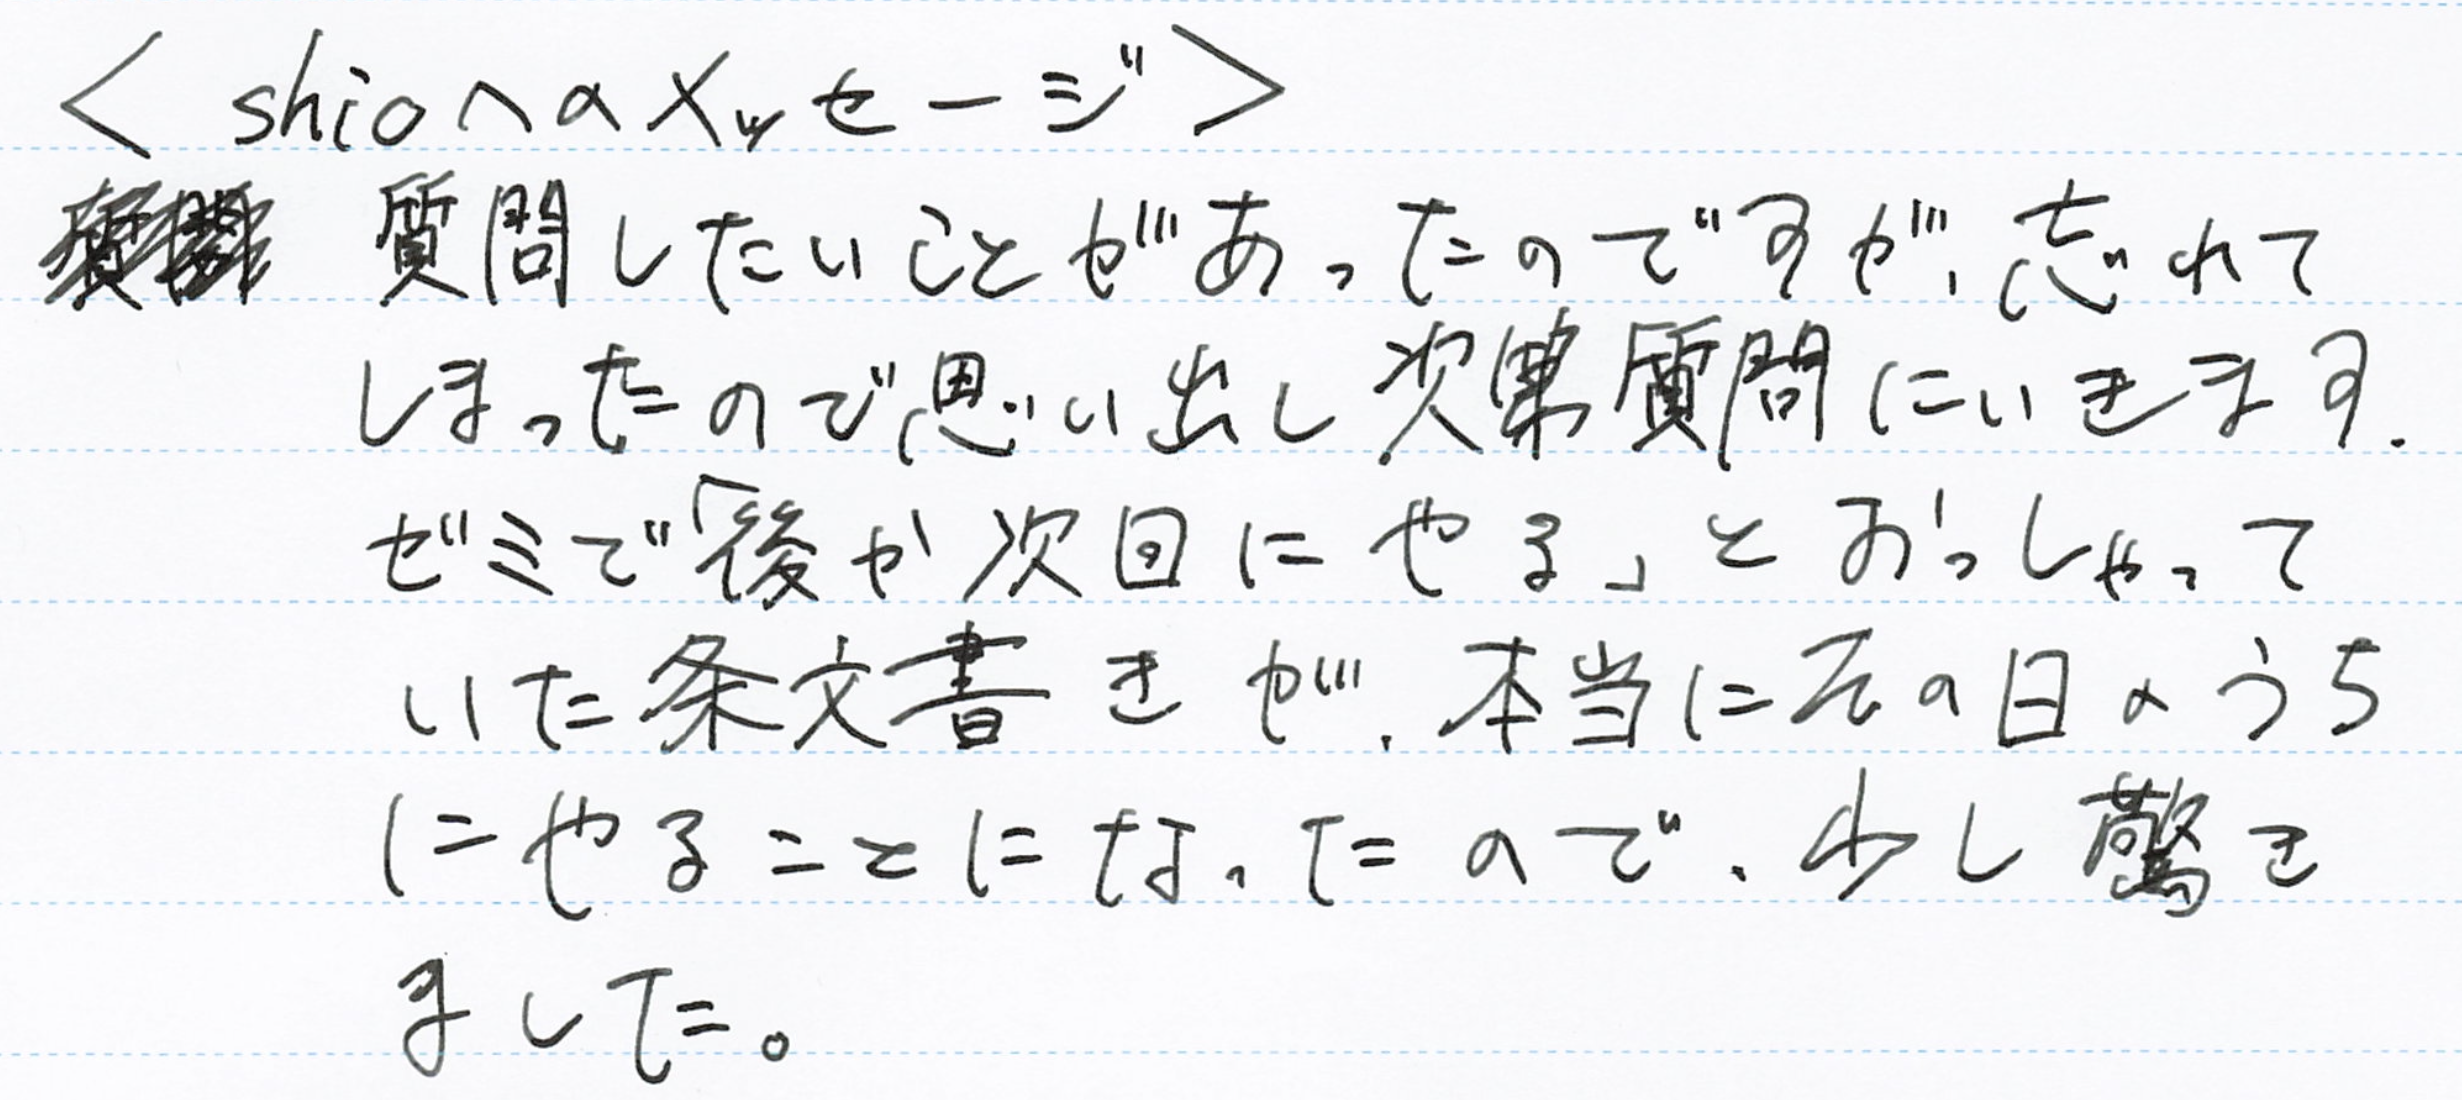 ＜shioへのメッセージ＞
質問したいことがあったのですが、忘れて
しまったので思い出し次第質問にいきます.
ゼミで「後か次回にやる」とおっしゃって
いた条文書きが、本当にその日のうち
にやることになったので、少し驚き
ました。